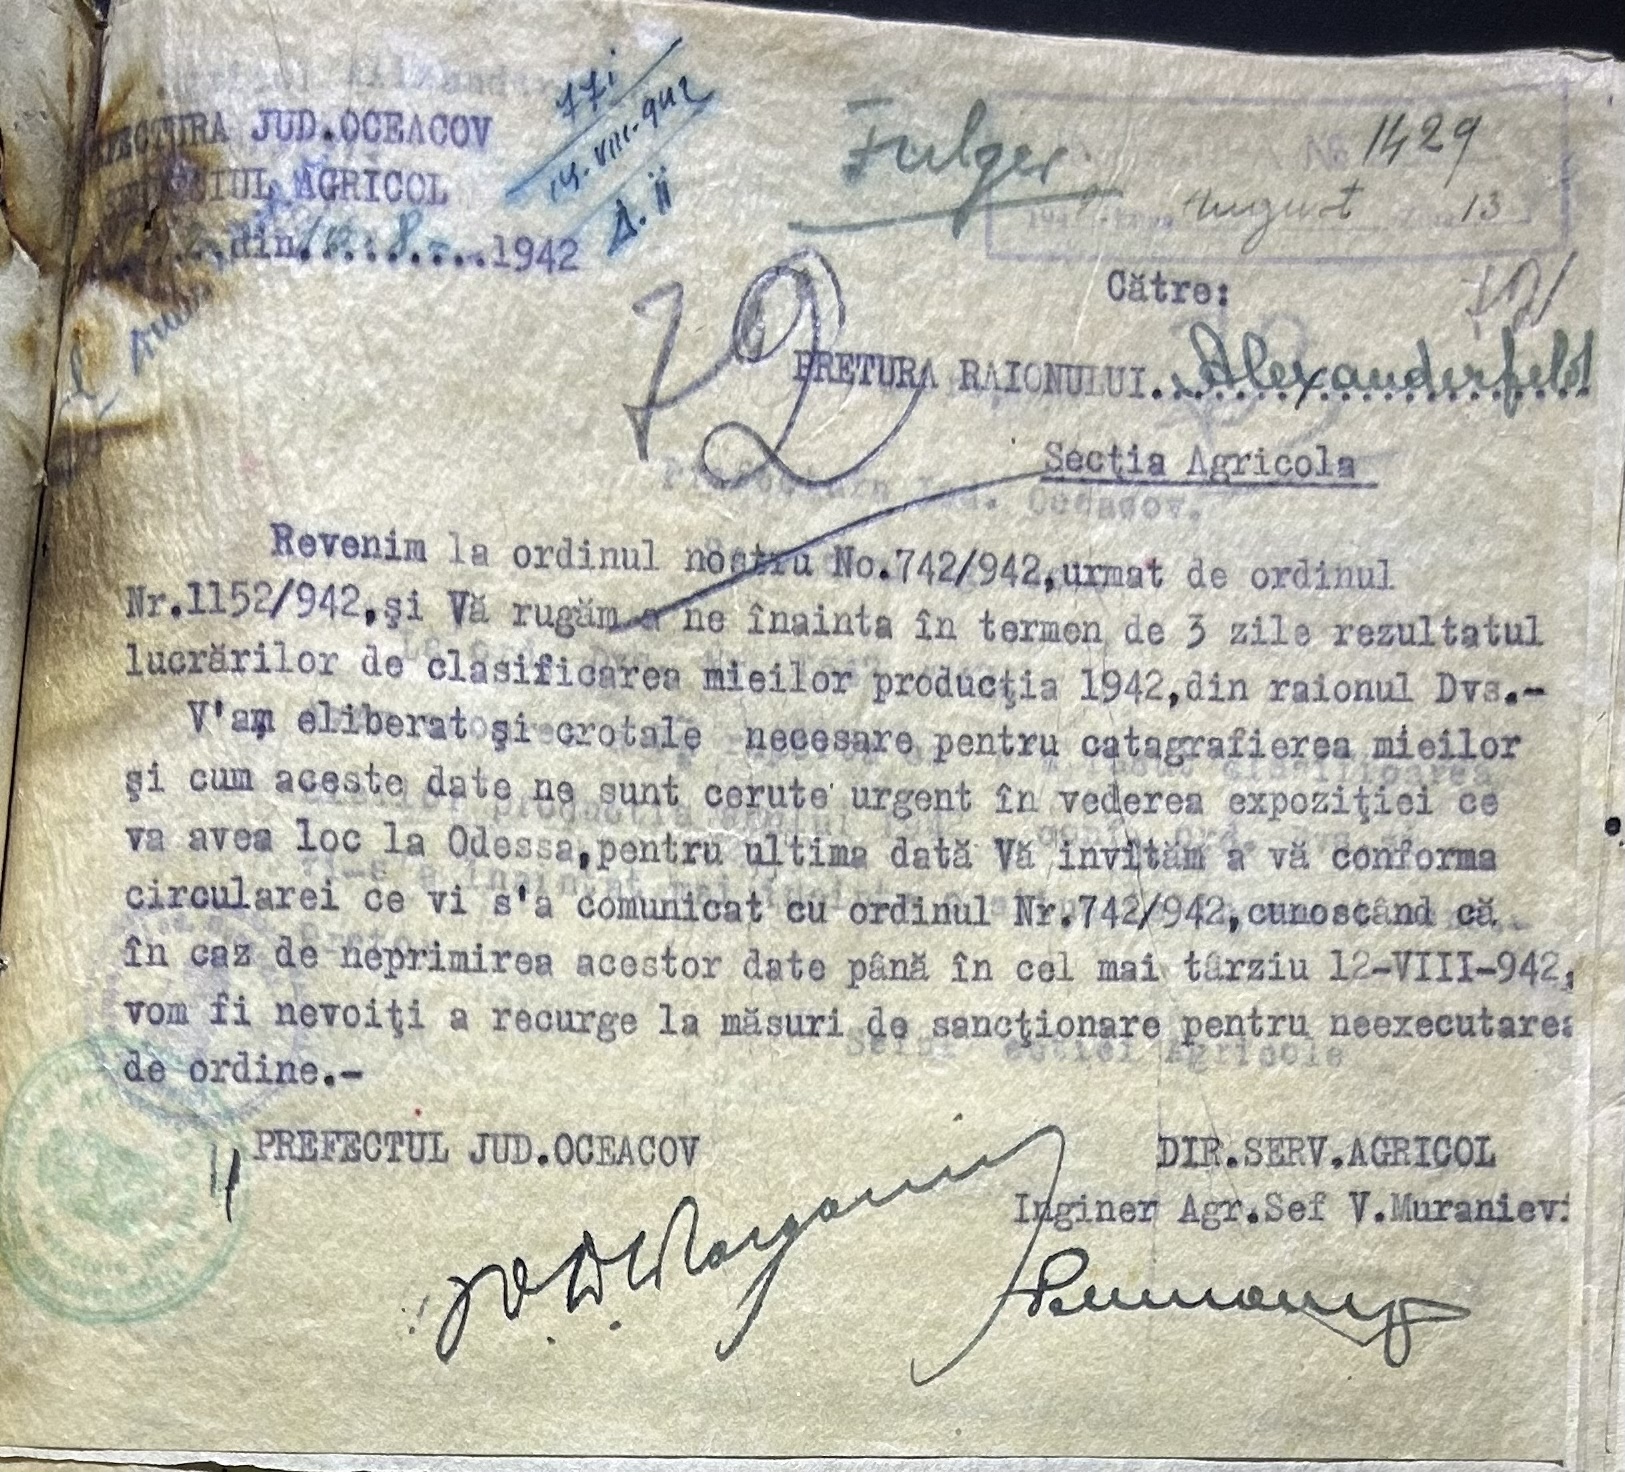 ECTURA JUD.OCEACOV
CIUL AGRICOL
din 8 1942
771
14.VIII.942
Fulger
No 1429
August 13
Către:
72
PRETURA RAIONULUI..Alexanderfeld
Secţia Agricola
Revenim la ordinul nostru No.742/942,urmat de ordinul
Nr.1152/942,şi Vă rugăm a ne înainta în termen de 3 zile rezultatul
lucrărilor de clasificarea mieilor producţia 1942,din raionul Dvs.-
V'am eliberat şi crotale necesare pentru catagrafierea mieilor
şi cum aceste date ne sunt cerute urgent în vederea expoziţiei ce
va avea loc la Odessa,pentru ultima dată Vă invităm a vă conforma
circularei ce vi s'a comunicat cu ordinul Nr.742/942,cunoscând că
în caz de neprimirea acestor date până în cel mai târziu 12-VIII-942,
vom fi nevoiţi a recurge la măsuri de sancţionare pentru neexecutarea
de ordine.-
PREFECTUL JUD.OCEACOV
DIR.SERV.AGRICOL
Inginer Agr.Sef V.Muranievi